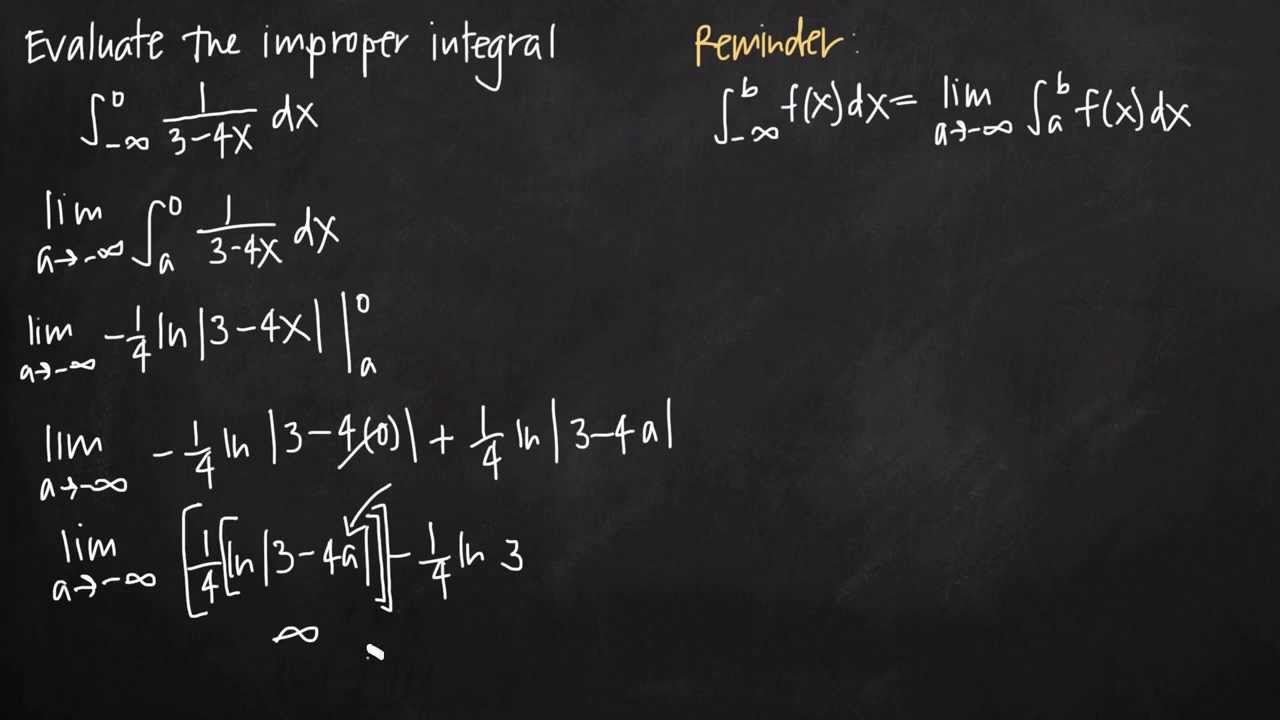 Evaluate the improper integral
∫_{-∞}^{0} \frac{1}{3-4x} dx
lim_{a→-∞} ∫_{a}^{0} \frac{1}{3-4x} dx
lim_{a→-∞} -\frac{1}{4} ln |3-4x| |_{a}^{0}
lim_{a→-∞} -\frac{1}{4} ln |3-4(0)| + \frac{1}{4} ln |3-4a|
lim_{a→-∞} [\frac{1}{4} [ln |3-4a|]] - \frac{1}{4} ln 3
∞
Reminder:
∫_{-∞}^{b} f(x)dx = lim_{a→-∞} ∫_{a}^{b} f(x)dx